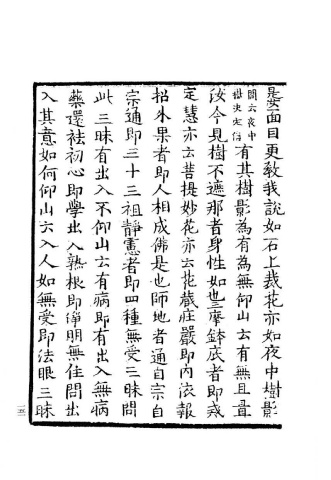 是娘面目更教我說如石上栽花亦如夜中樹影
問六夜中樹決定信有其樹影為有為無仰山云有無且置
汝今見樹不遮那者身性如也三摩鉢底者即戒
定慧亦云菩提妙花亦云花藏莊嚴即內依報
招外果者即人相成佛是也師地者通自宗自
宗通即三十三祖靜憲者即四種無受三昧問
此三昧有出入不仰山云有病即有出入無病
藥還袪初心即學出入熟根即淨明無住問出
入其意如何仰山云入人如無受即法眼三昧
一五